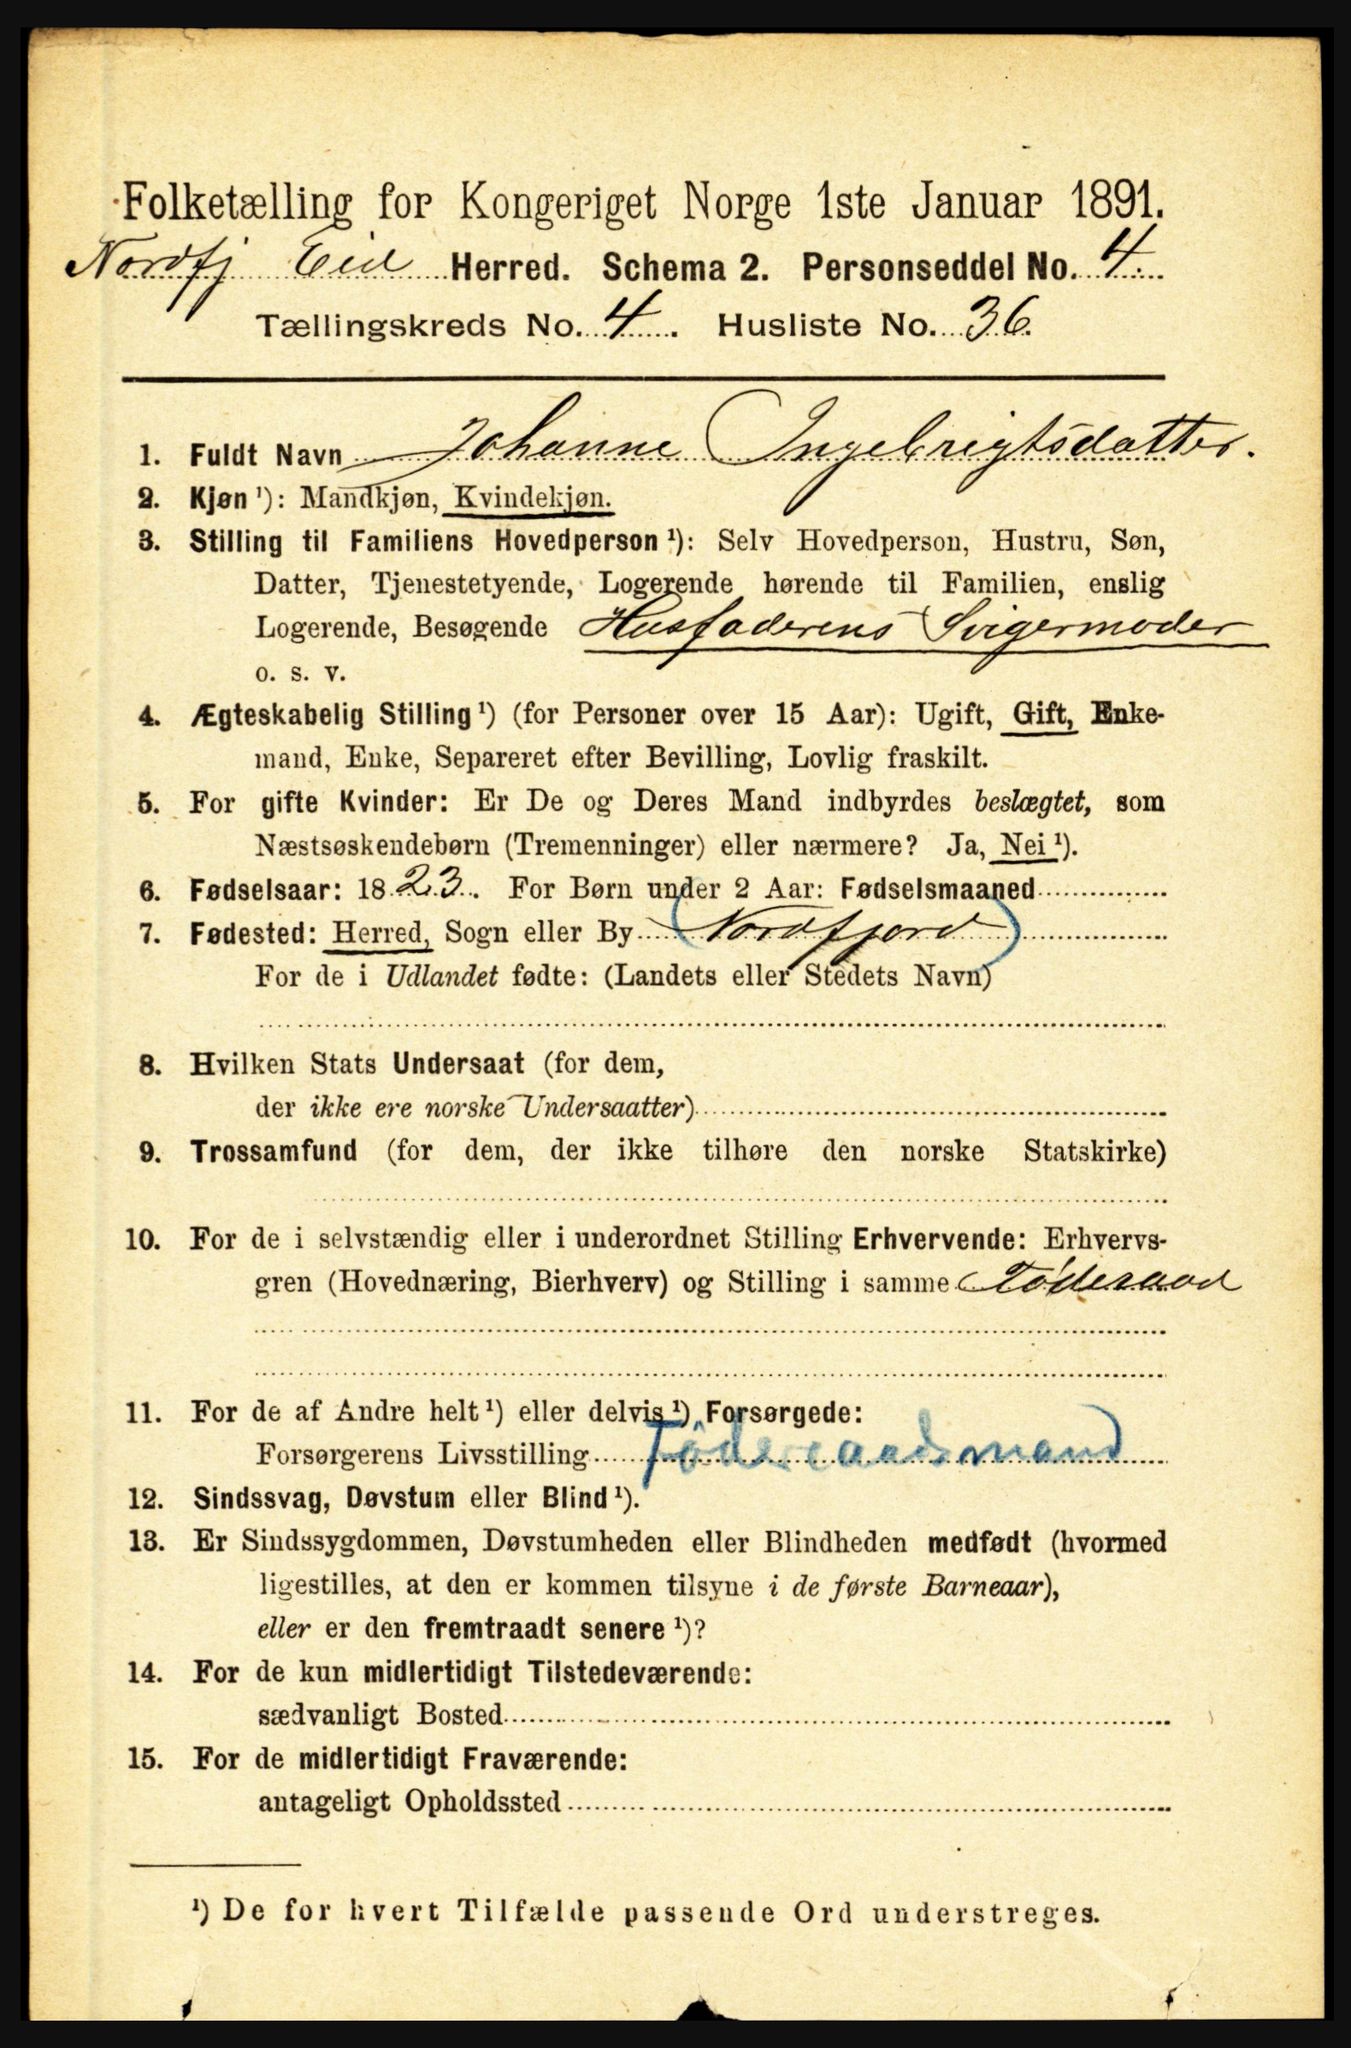 Folketælling for Kongeriget Norge 1ste Januar 1891.
Nordfj Eid Herred. Schema 2. Personseddel No. 4.
Tællingskreds No. 4. Husliste No. 36.
1. Fuldt Navn Johanne Ingebrigtsdatter.
2. Kjøn ¹): Mandkjøn, Kvindekjøn.
3. Stilling til Familiens Hovedperson ¹): Selv Hovedperson, Hustru, Søn,
Datter, Tjenestetyende, Logerende hørende til Familien, enslig
Logerende, Besøgende Husfaderens Svigermoder
o. s. v.
4. Ægteskabelig Stilling ¹) (for Personer over 15 Aar): Ugift, Gift, Enke-
mand, Enke, Separeret efter Bevilling, Lovlig fraskilt.
5. For gifte Kvinder: Er De og Deres Mand indbyrdes beslægtet, som
Næstsøskendebørn (Tremenninger) eller nærmere? Ja, Nei ¹).
6. Fødselsaar: 1823. For Børn under 2 Aar: Fødselsmaaned
7. Fødested: Herred, Sogn eller By (Nordfjord)
For de i Udlandet fødte: (Landets eller Stedets Navn)
8. Hvilken Stats Undersaat (for dem,
der ikke ere norske Undersaatter)
9. Trossamfund (for dem, der ikke tilhøre den norske Statskirke)
10. For de i selvstændig eller i underordnet Stilling Erhvervende: Erhvervs-
gren (Hovednæring, Bierhverv) og Stilling i samme Føderaad
11. For de af Andre helt ¹) eller delvis ¹) Forsørgede:
Forsørgerens Livsstilling Føderaadsmand
12. Sindssvag, Døvstum eller Blind ¹).
13. Er Sindssygdommen, Døvstumheden eller Blindheden medfødt (hvormed
ligestilles, at den er kommen tilsyne i de første Barneaar),
eller er den fremtraadt senere ¹)?
14. For de kun midlertidigt Tilstedeværende:
sædvanligt Bosted
15. For de midlertidigt Fraværende:
antageligt Opholdssted
¹) De for hvert Tilfælde passende Ord understreges.